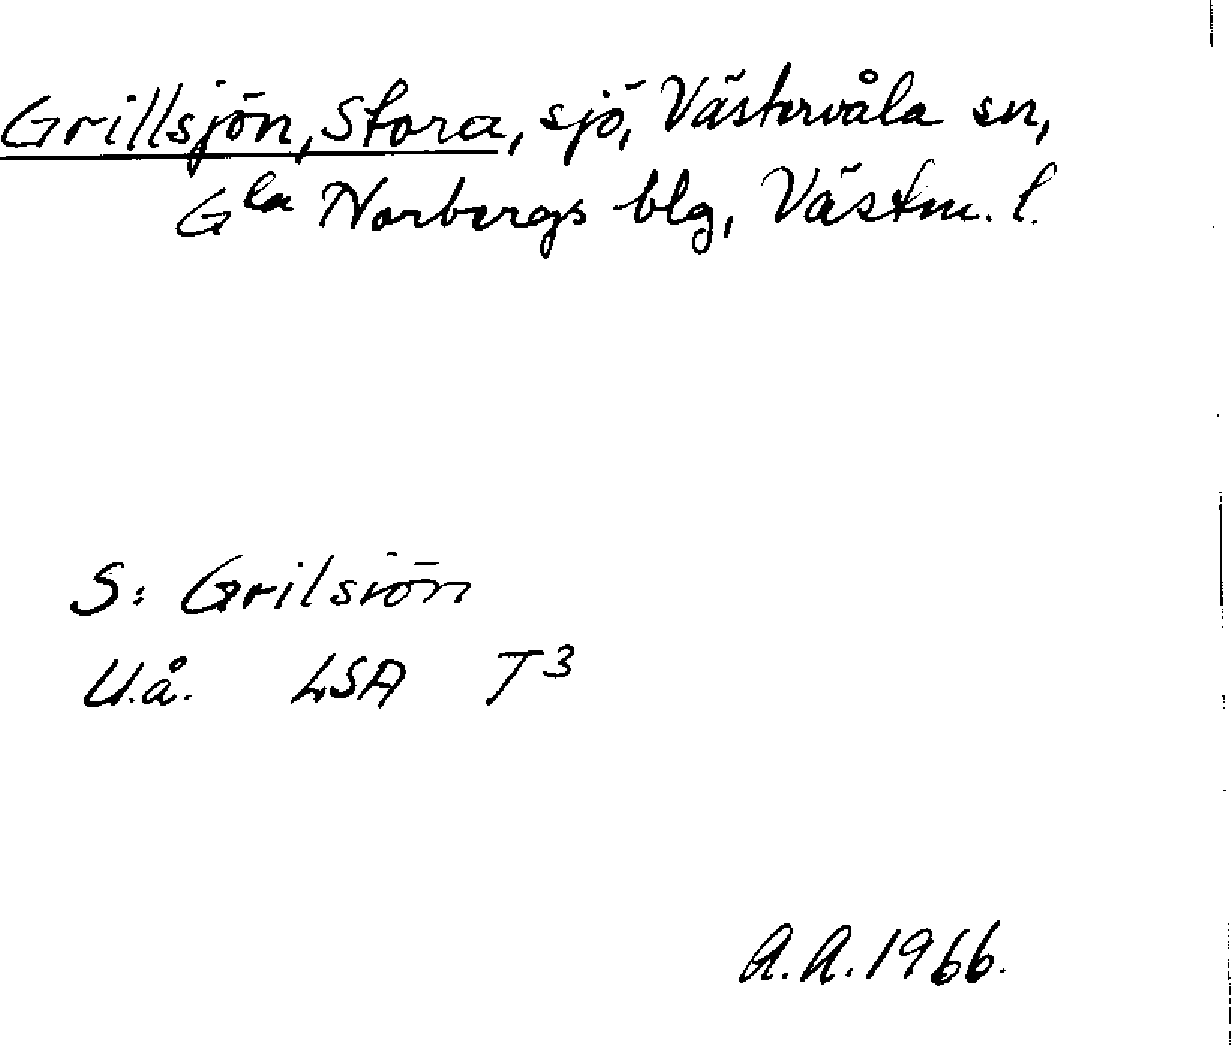 Grillsjön, Stora, sjö, Västervåla sn,
Gla Norbergs blg, Västm. l.
S: Grilsiön
U.å. LSA T3
A.A. 1966.